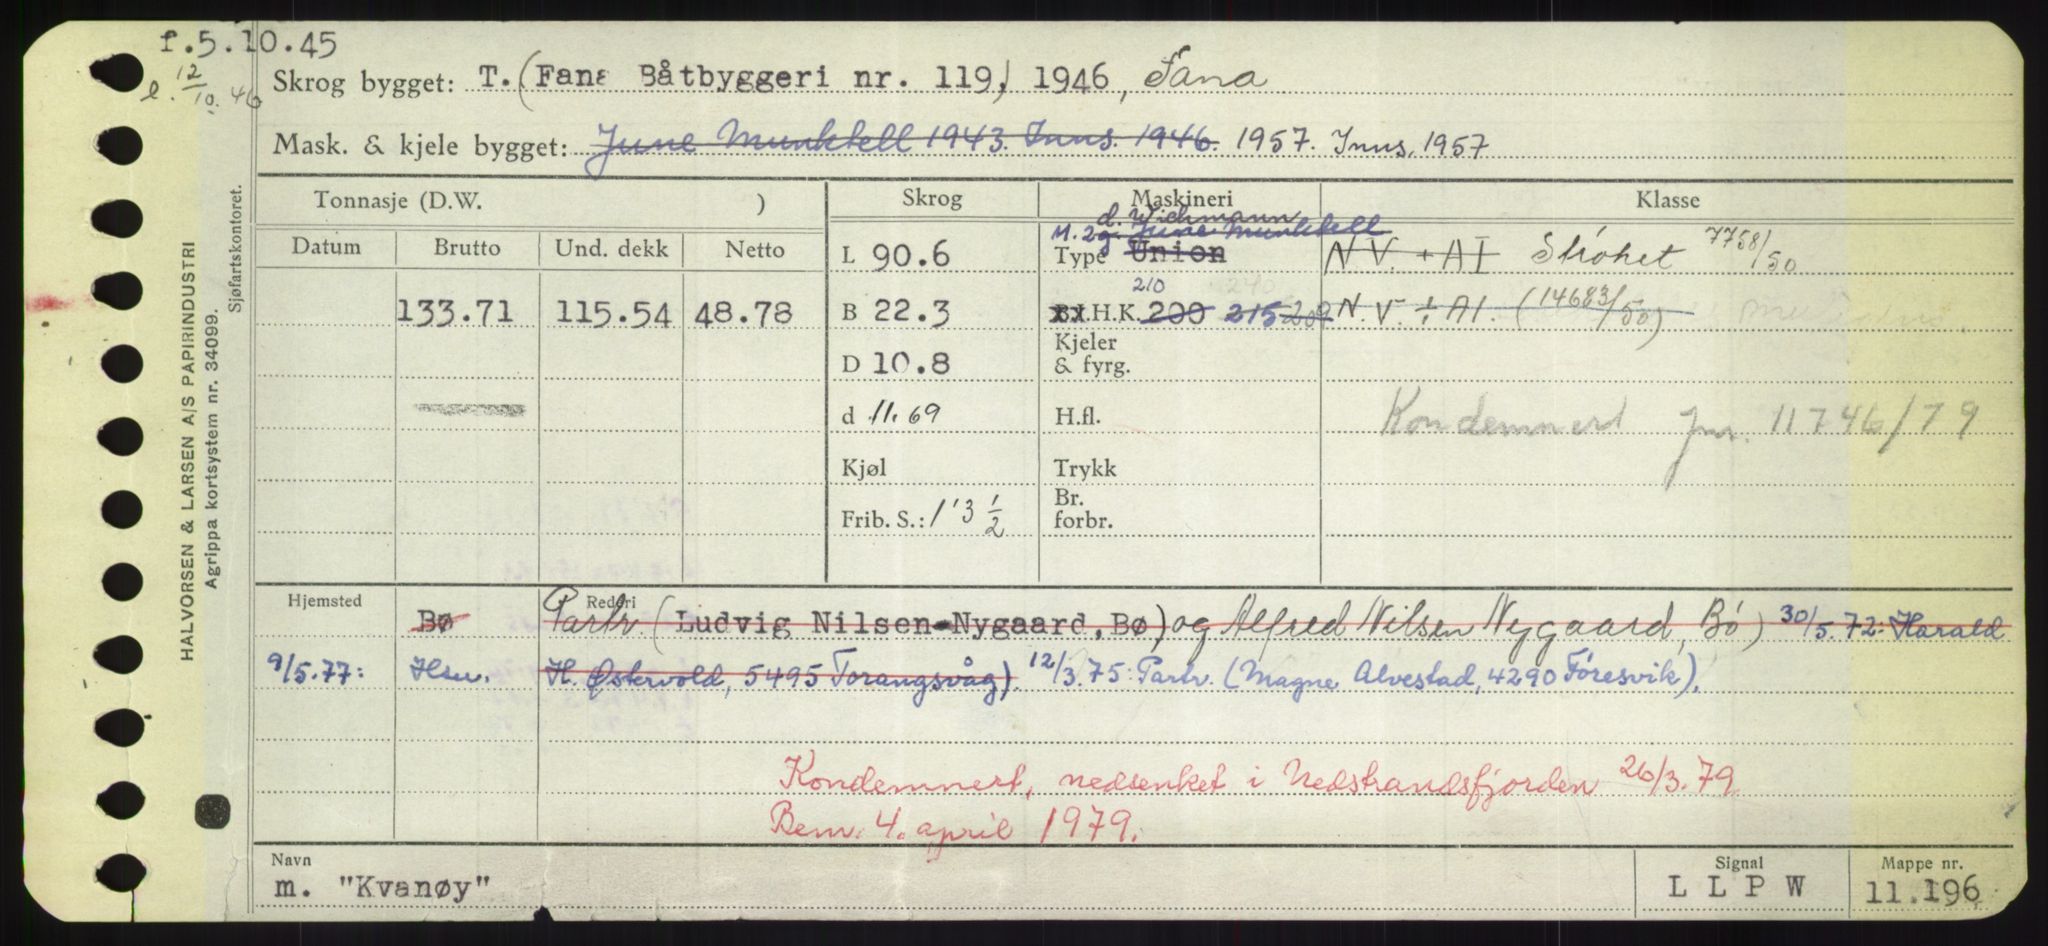 f.5.10.45
l. 12/10.46
Skrog bygget: T. (Fana Båtbyggeri nr. 119) 1946, Fana
Mask. & kjele bygget: June Munktell 1943. Inns. 1946. 1957. Inns. 1957
Tonnasje (D.W. ) Skrog Maskineri Klasse
d. Wichmann
M. 2 g. June Munktell
Datum Brutto Und. dekk Netto L 90.6 Type Union N V. + A I Strøket 7758/50
210 240
133.71 115.54 48.78 B 22.3 I.H.K. 200 215 209 N. V. + A I. (14683/50)
D 10.8 Kjeler & fyrg.
d 11.69 H.fl. Kondemnert jnr. 11746/79
Kjøl Trykk
Frib. S.: 1' 3 1/2 Br. forbr.
Hjemsted Bø Rederi Partr. (Ludvig Nilsen-Nygaard, Bø) og Alfred Nilsen Nygaard, Bø) 30/5.72: Harald
9/5.77: Hsu. H. Østervold, 5495 Torangsvåg). 12/3.75: Partr. (Magne Alvestad, 4290 Føresvik).
Kondemnert, nedsenket i Nedstrandsfjorden 26/3.79.
Bem. 4. april 1979.
Navn Signal Mappe nr.
m. "Kvanøy" L L P W 11.196
HALVORSEN & LARSEN A/S PAPIRINDUSTRI
Agrippa kortsystem nr. 34099.
Sjøfartskontoret.